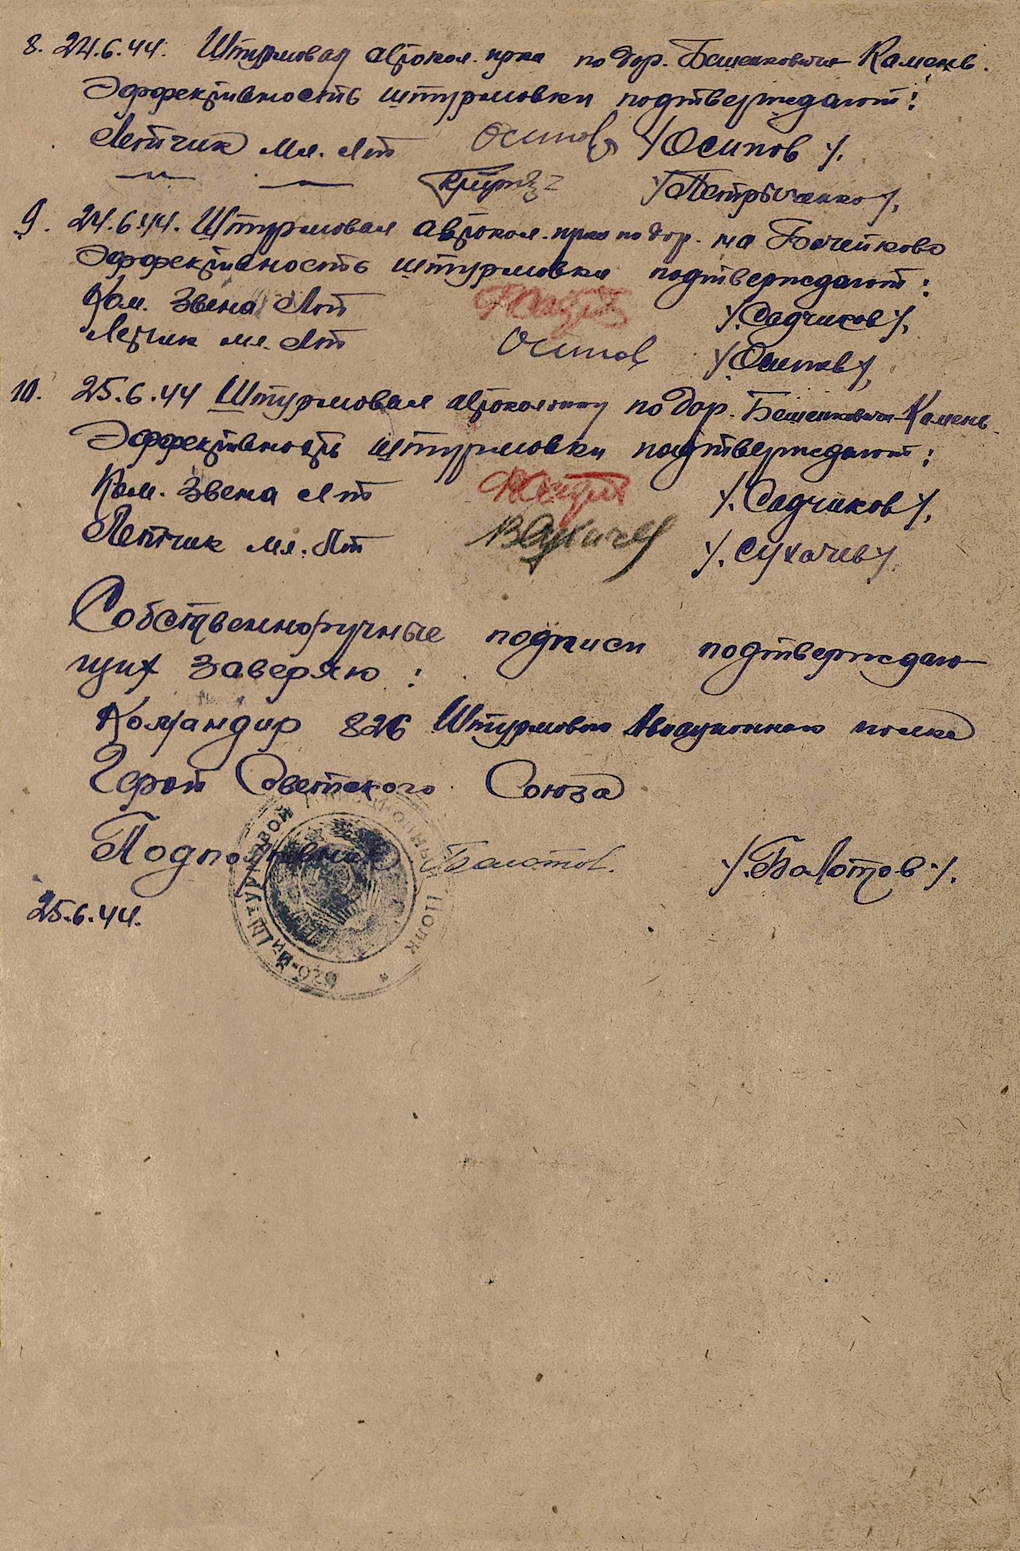 8. 24.6.44. Штурмовал автокол. пр-ка по дор. Бешенковичи – Камень.
Эффективность штурмовки подтверждают:
Летчик мл. л-т Осипов /Осипов/.
—"— —"— /Петрыченко/.
9. 24.6.44. Штурмовал автокол. пр-ка по дор. на Бочейково
Эффективность штурмовки подтверждают:
Ком. Звена л-т /Садчиков/,
Летчик мл. л-т Осипов /Осипов/,
10. 25.6.44 Штурмовал автоколонну по дор. Бешенковичи – Камень.
Эффективность штурмовки подтверждают:
Ком. Звена л-т /Садчиков/,
Летчик мл. л-т /Сухачев/.
Собственноручные подписи подтверждаю-
щих заверяю:
Командир 826 Штурмового Авиационного полка
Герой Советского Союза
Подполковник Болотов. /Болотов/.
25.6.44.